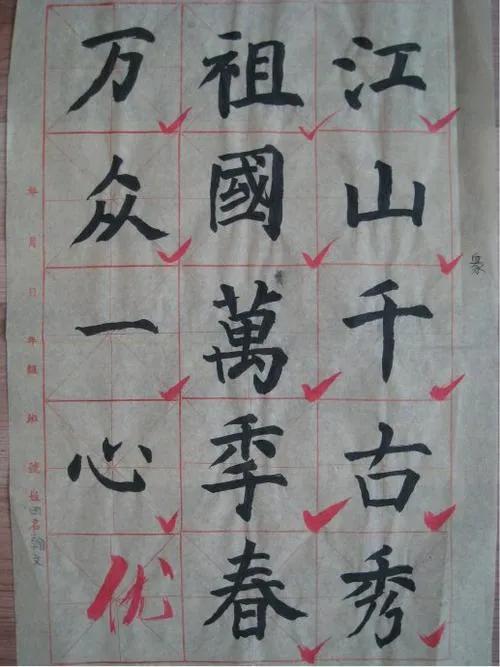 江山千古秀
祖國萬秊春
万众一心
优
年 月 日 年級 班 號 姓名